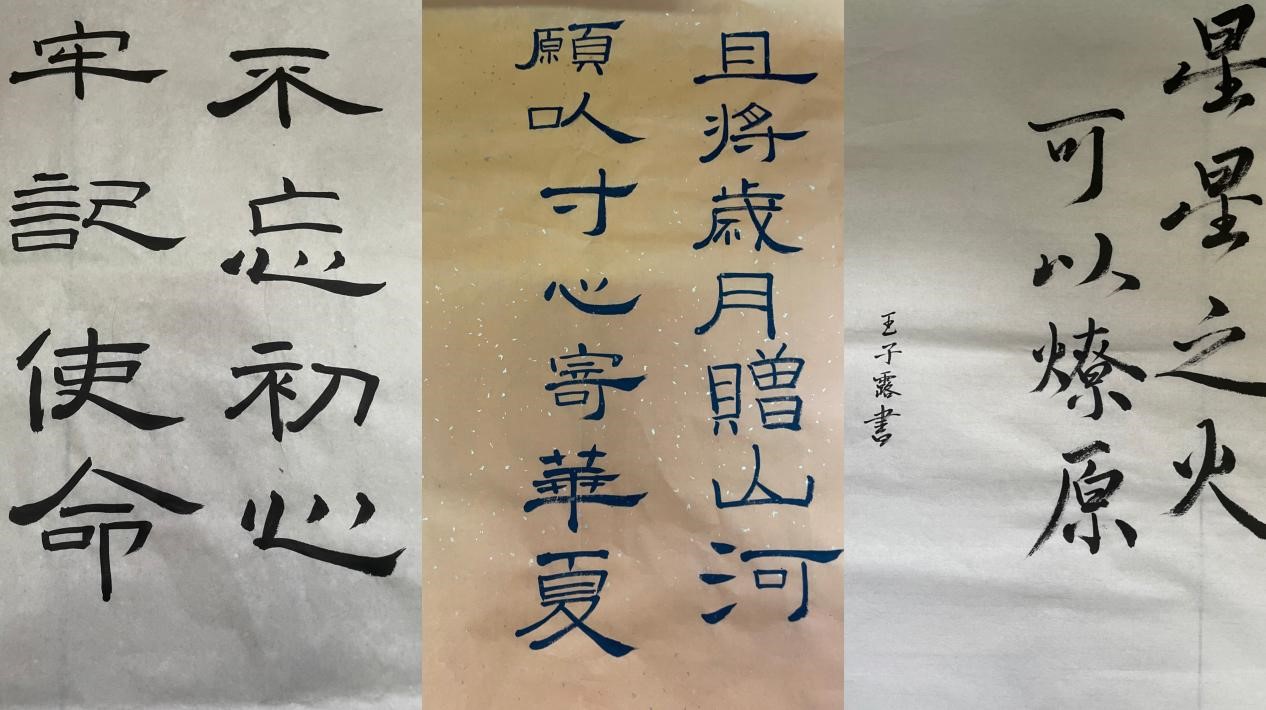 不忘初心
牢記使命
且将歳月贈山河
願以寸心寄華夏
星星之火
可以燎原
王子露書